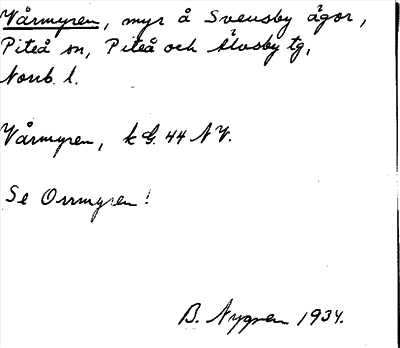 Vårmyren, myr å Svensby ägor,
Piteå sn, Piteå och Älvsby tg,
Norrb. l.
Vårmyren, k G. 44 NV.
Se Orrmyren!
B. Nygren 1934.